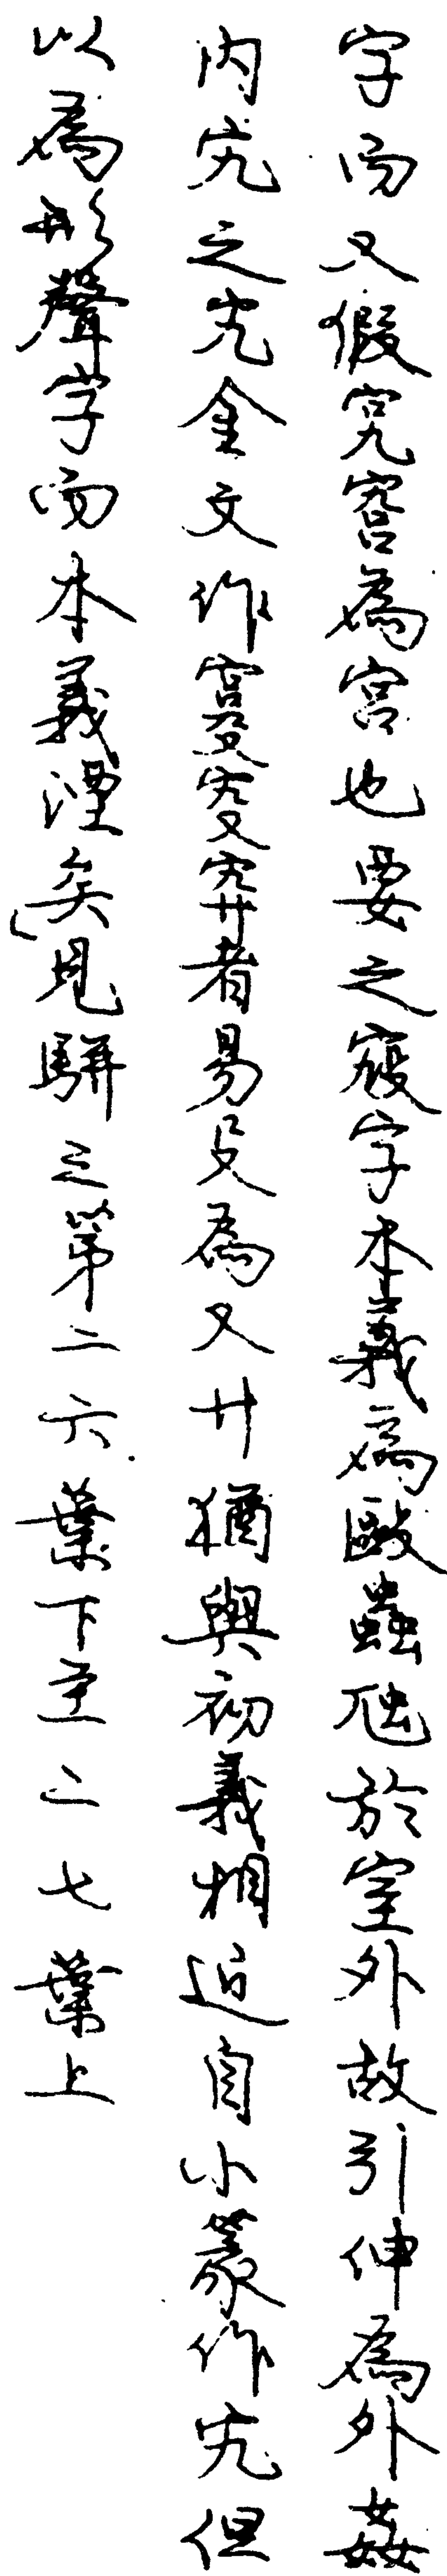 字而又假宄窖為宮也要之㝛字本義為毆蟲虺於室外故引伸為外姦
內宄之宄金文作𡪢𡧪𡧯者易殳為又廾猶與初義相近自小篆作宄但
以為形聲字而本義湮矣」見駢之第二六葉下至二七葉上